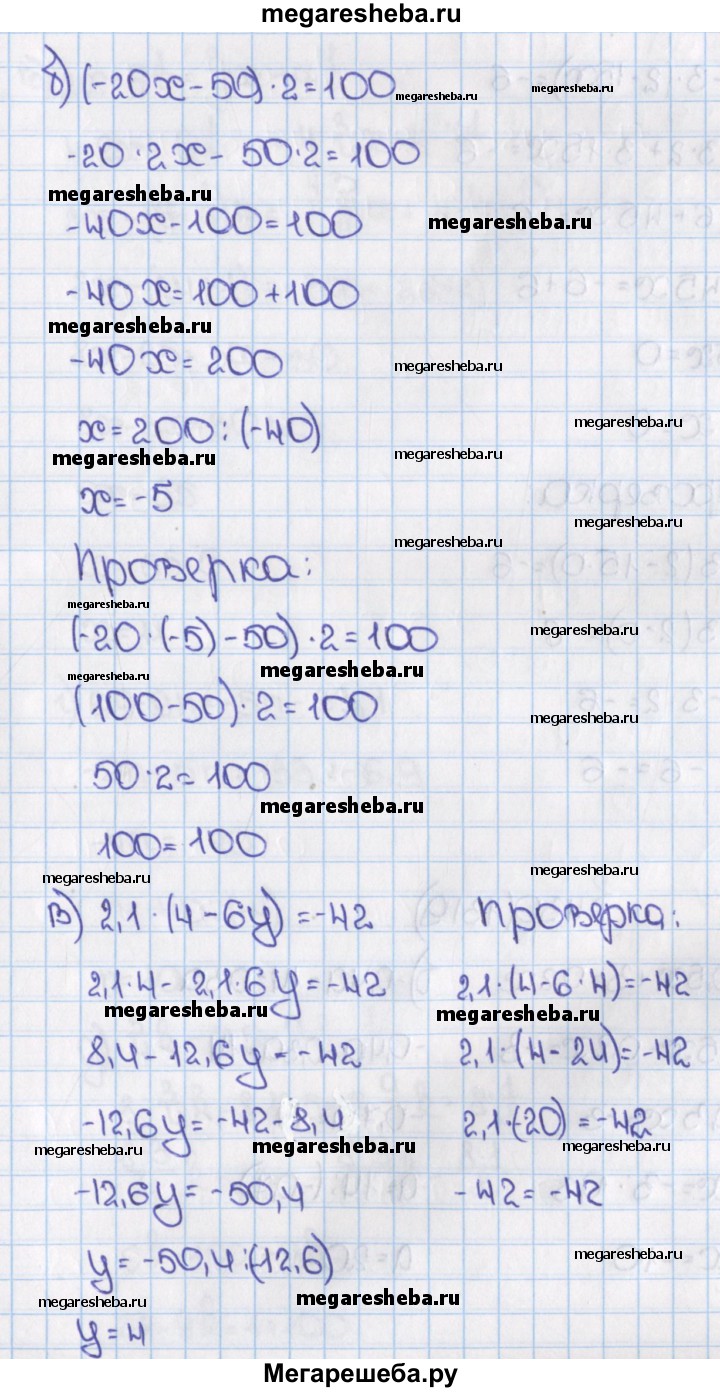 megaresheba.ru
б) (-20x - 50) · 2 = 100
megaresheba.ru
-20 · 2x - 50 · 2 = 100
megaresheba.ru
-40x - 100 = 100
megaresheba.ru
-40x = 100 + 100
megaresheba.ru
-40x = 200
megaresheba.ru
x = 200 : (-40)
megaresheba.ru
megaresheba.ru
megaresheba.ru
x = -5
megaresheba.ru
Проверка:
megaresheba.ru
megaresheba.ru
(-20 · (-5) - 50) · 2 = 100
megaresheba.ru
megaresheba.ru
megaresheba.ru
(100 - 50) · 2 = 100
megaresheba.ru
50 · 2 = 100
megaresheba.ru
100 = 100
megaresheba.ru
megaresheba.ru
в) 2,1 · (4 - 6y) = -42
2,1 · 4 - 2,1 · 6y = -42
megaresheba.ru
8,4 - 12,6y = -42
-12,6y = -42 - 8,4
megaresheba.ru
megaresheba.ru
-12,6y = -50,4
y = -50,4 : (-12,6)
megaresheba.ru
megaresheba.ru
y = 4
Проверка:
2,1 · (4 - 6 · 4) = -42
megaresheba.ru
2,1 · (4 - 24) = -42
2,1 · (-20) = -42
megaresheba.ru
-42 = -42
megaresheba.ru
Мегарешеба.ру